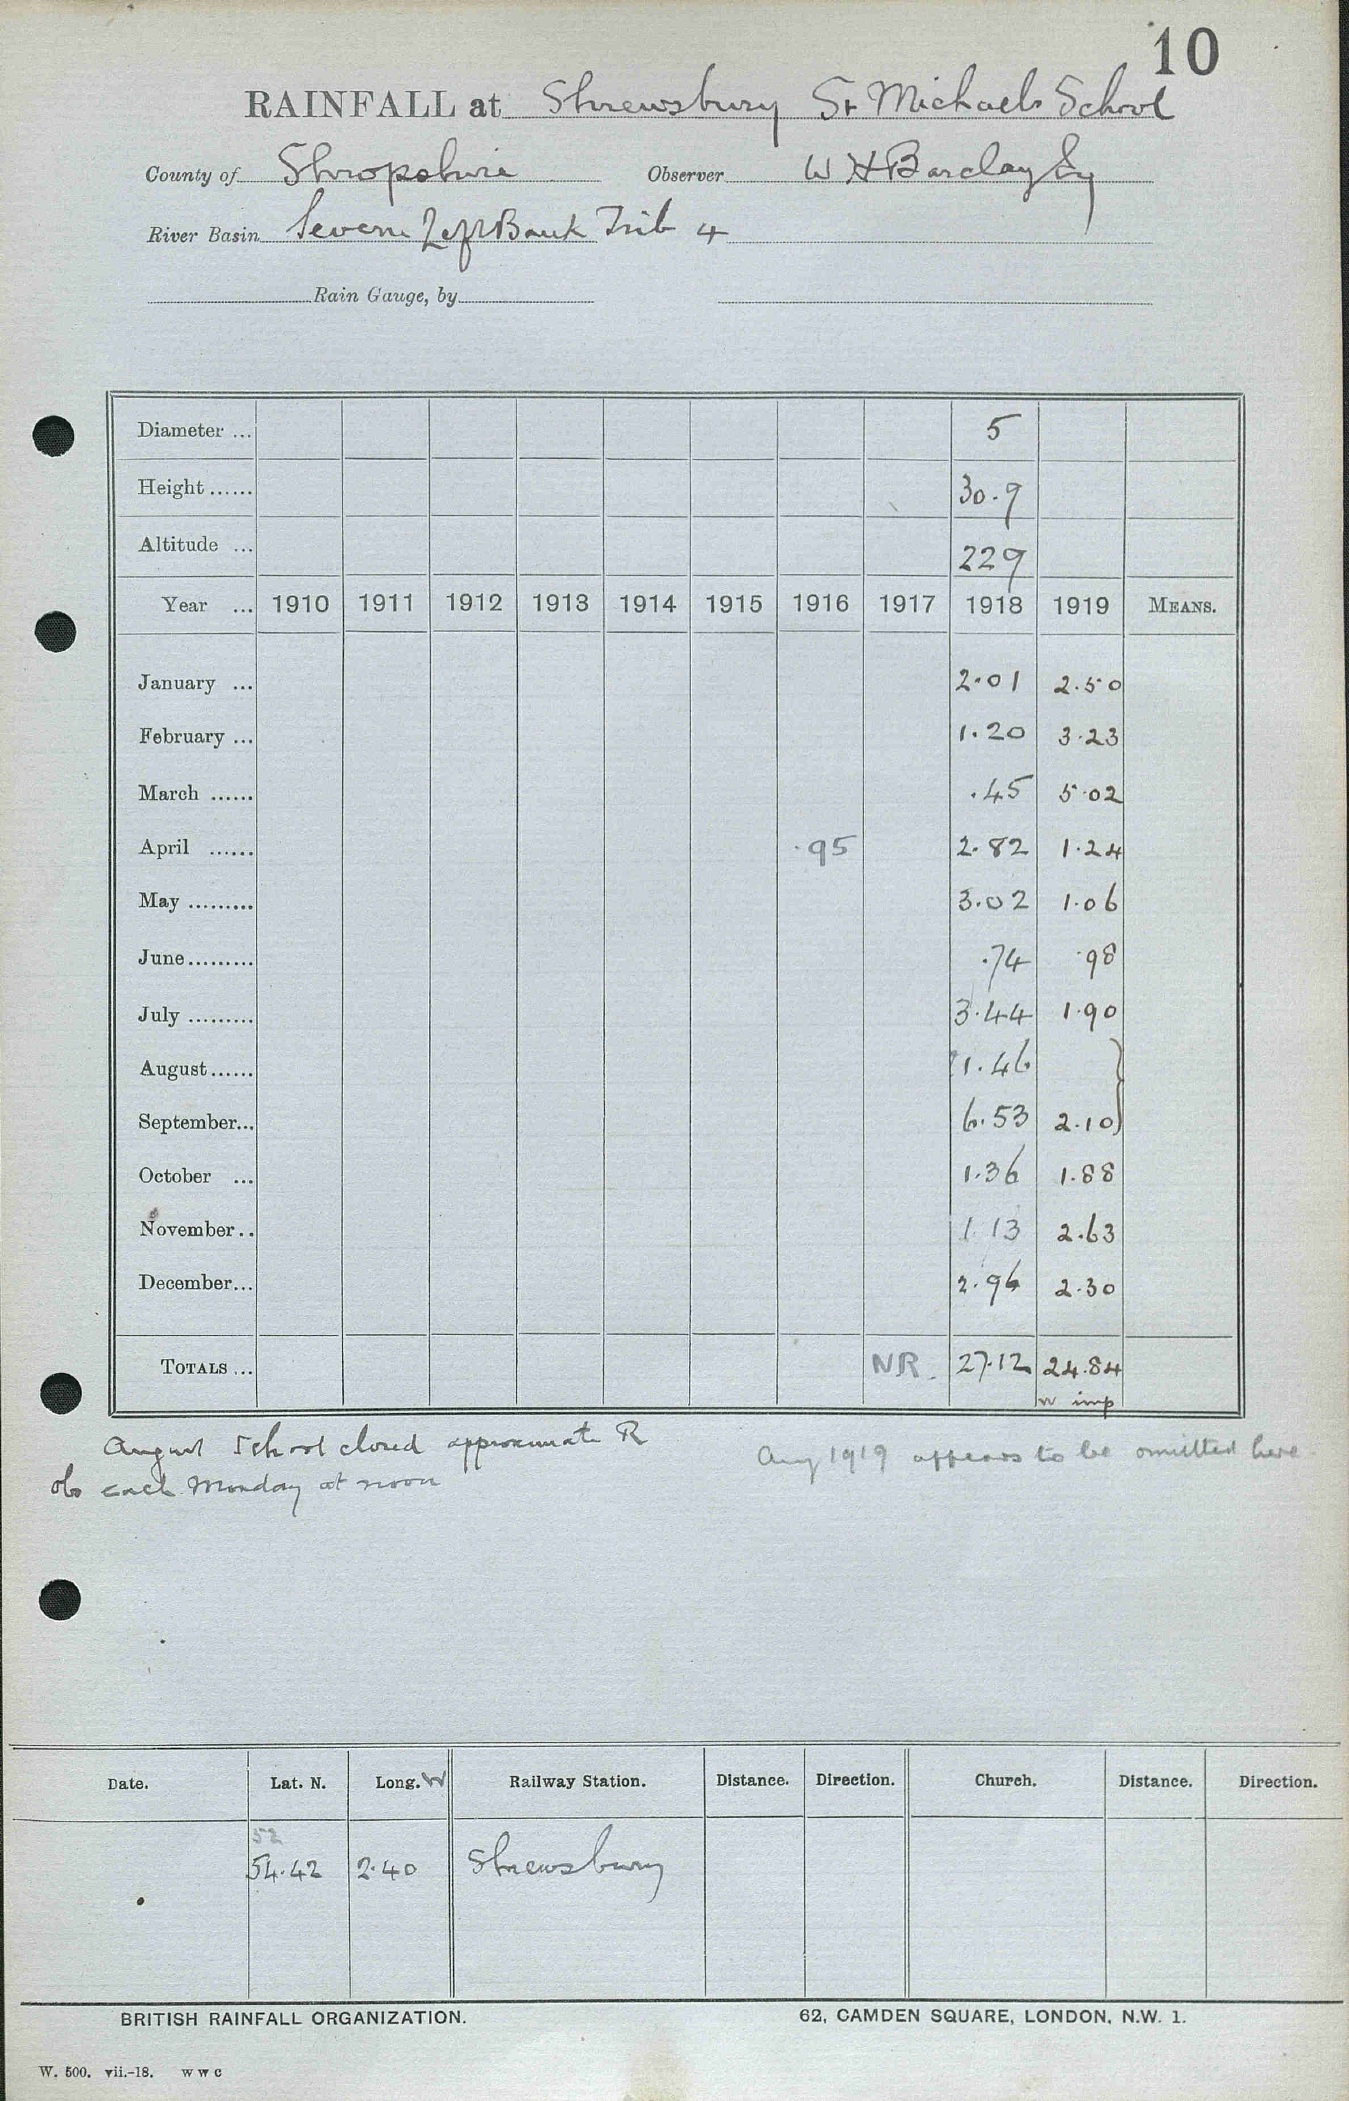 10
RAINFALL at Shrewsbury St Michaels School
County of Shropshire Observer W H Barclay Esq
River Basin Severn Left Bank Trib 4
Rain Gauge, by
Diameter ... 5
Height ...... 30.9
Altitude ... 229
Year ... 1910 1911 1912 1913 1914 1915 1916 1917 1918 1919 MEANS.
January ... 2.01 2.50
February ... 1.20 3.23
March ...... .45 5.02
April ...... .95 2.82 1.24
May ......... 3.02 1.06
June......... .74 .98
July ......... 3.44 1.90
August...... ?1.46 }
September... 6.53 2.10
October ... 1.36 1.88
November.. 1.13 2.63
December... 2.96 2.30
TOTALS ... NR. 27.12 24.84
imp
August School closed approximate R
Aug 1919 appears to be omitted here
obs each Monday at noon
Date. Lat. N. Long. W Railway Station. Distance. Direction. Church. Distance. Direction.
52
54.42 2.40 Shrewsbury
BRITISH RAINFALL ORGANIZATION. 62, CAMDEN SQUARE, LONDON, N.W. 1.
W. 500. vii.-18. w w c